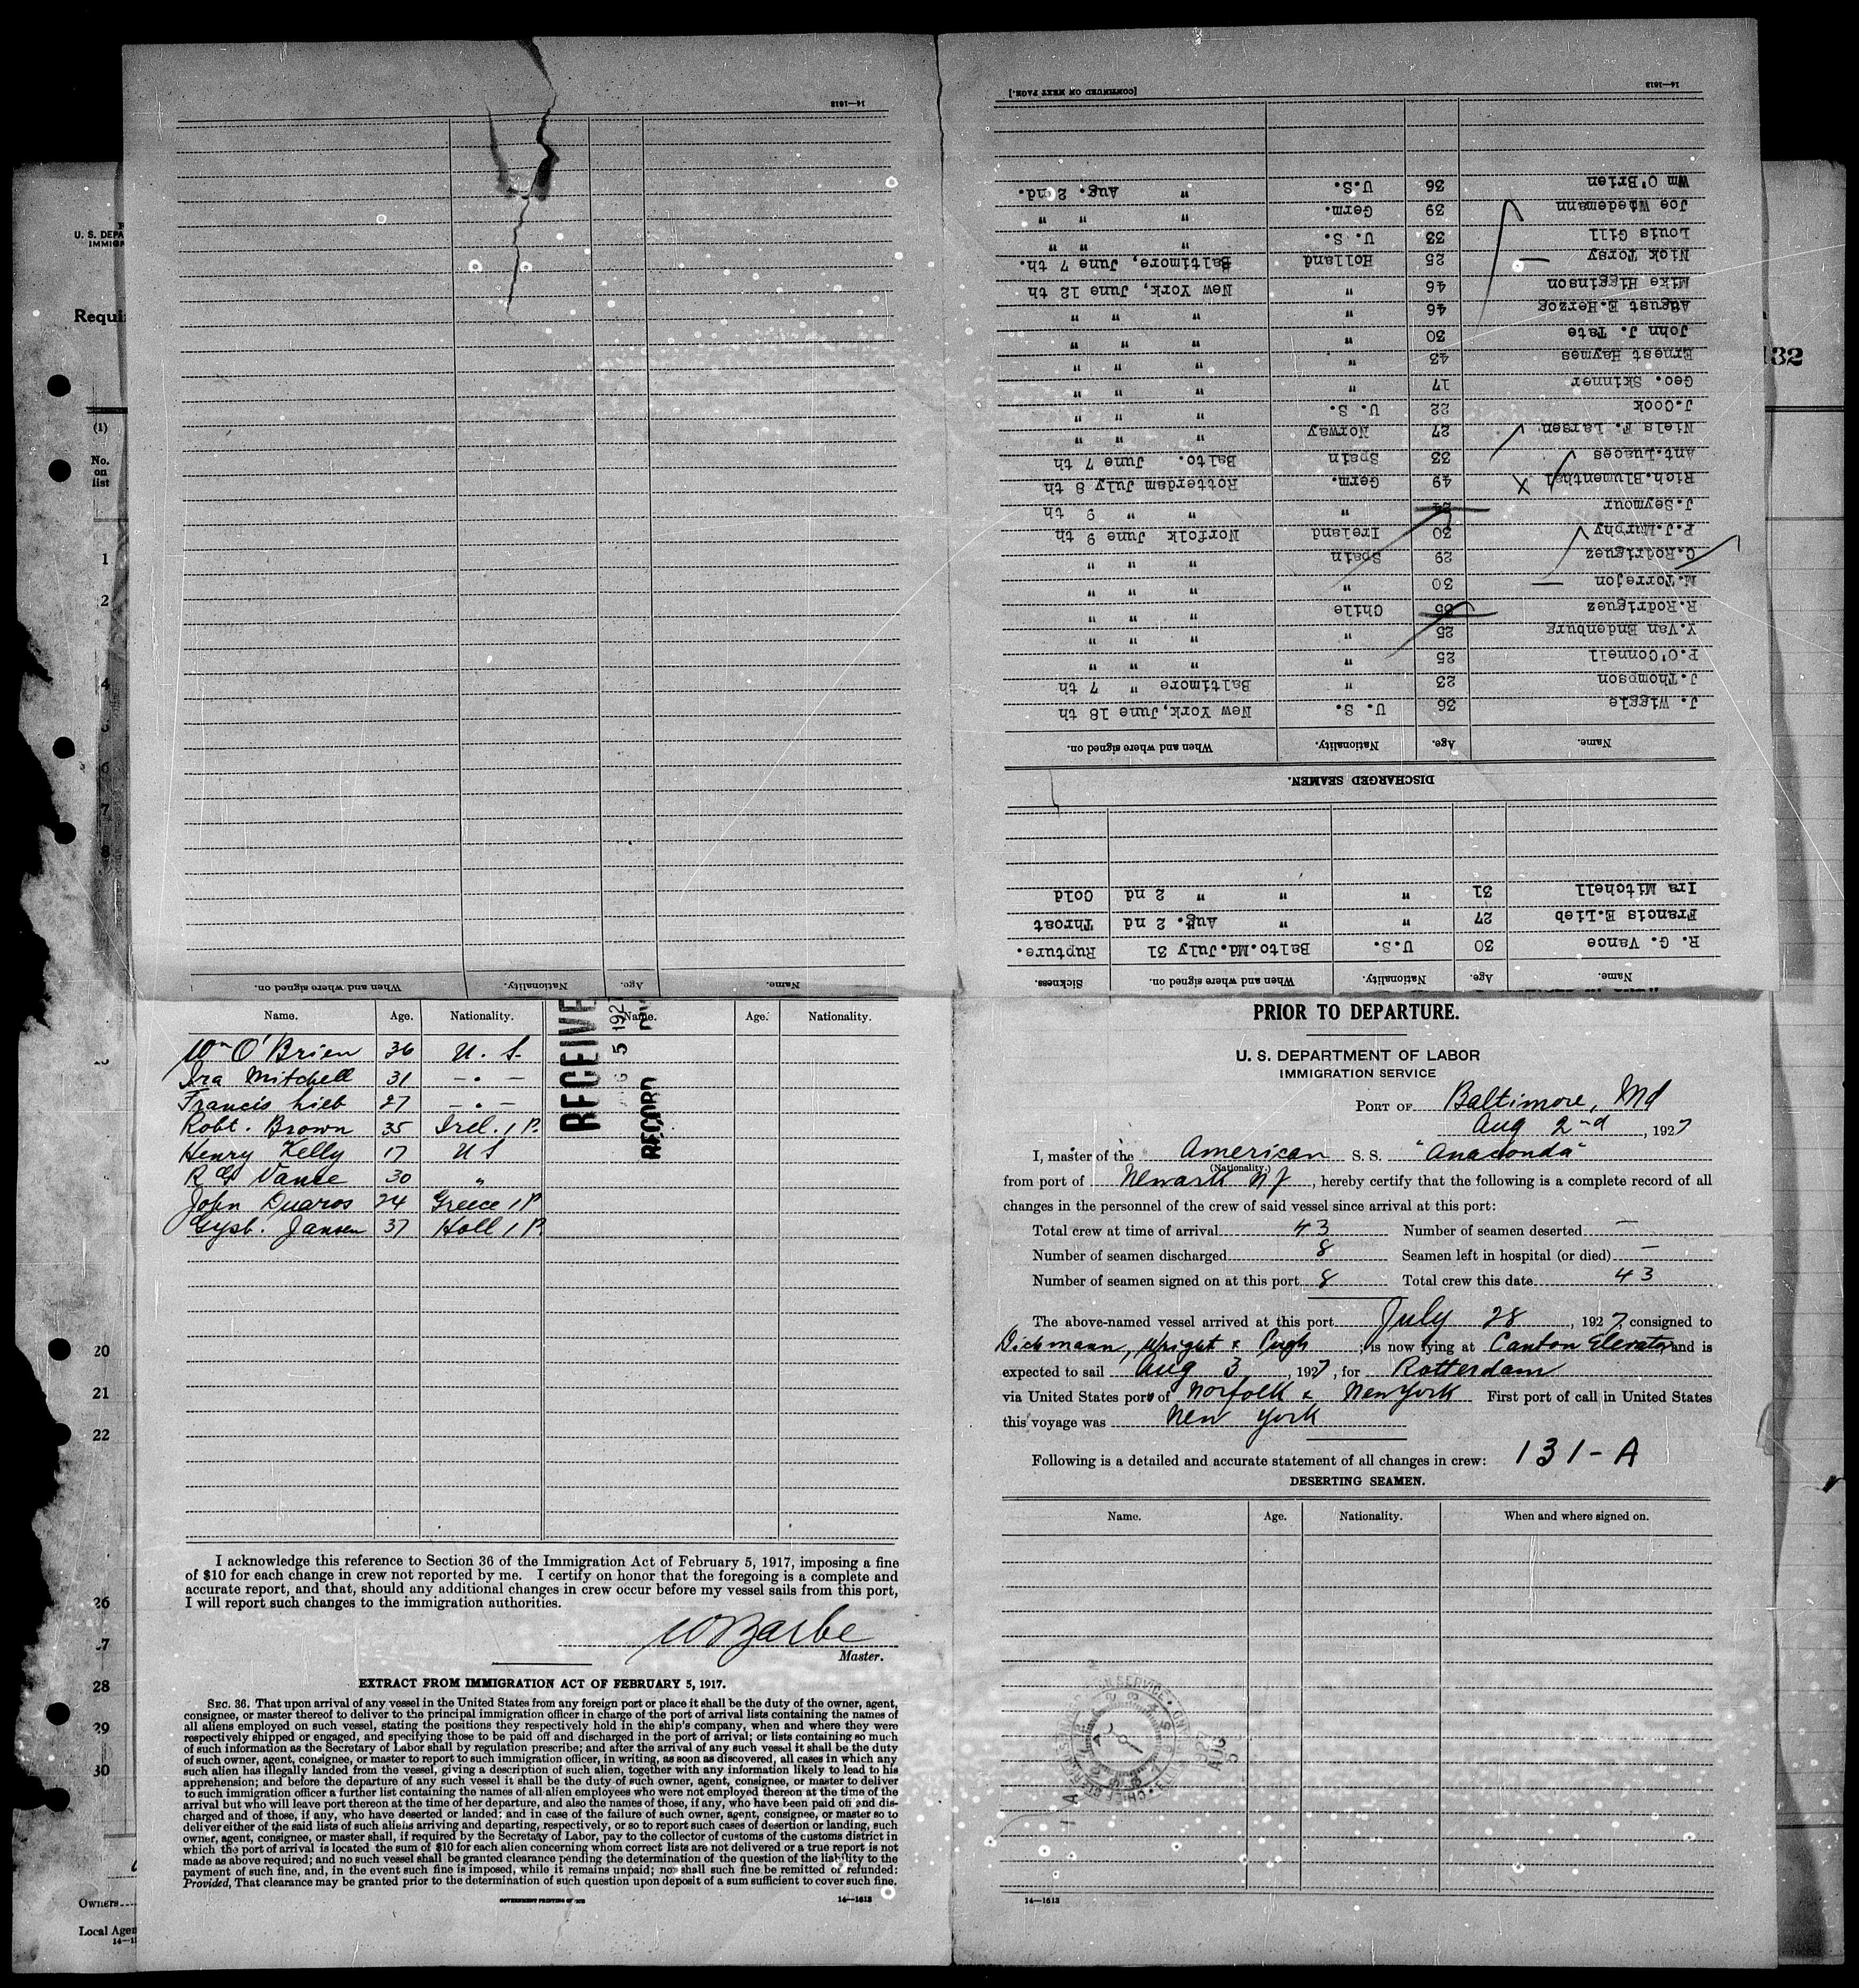 14—1613
Name. Age. Nationality. When and where signed on.
[CONTINUED ON NEXT PAGE.]
14—1613
R. G. Vance 30 U.S. Balto.Md.July 31 Rupture.
Francis E.Lieb 27 " " Aug. 2 nd Throat
Ira Mitchell 31 " " " 2 nd Cold
Name. Age. Nationality. When and where signed on. Sickness.
DISCHARGED SEAMEN.
Name. Age. Nationality. When and where signed on.
J. Wiggle 36 U. S. New York,June 18 th
J. Thompson 23 " Baltimore " 7 th
P.O'Connell 25 " " " "
Y.Van Endenburg 25 " " " "
R.Rodriguez Chile " " "
M.Torrejon 30 " " " "
C.Rodriguez 29 Spain " " "
P.J.Murphy 30 Ireland Norfolk June 9 th
J.Seymour " " " 9 th
Rich.Blumenthal 49 Germ. Rotterdam July 8 th
Ant.Luaces 33 Spain Balto. June 7 th
Niels F. Larsen 27 Norway " " "
J.Cook 22 U. S. " " "
Geo. Skinner 17 " " " "
Ernest Haymes 43 " " " "
John J. Tate 30 " " " "
August E.Herzog 46 " " " "
Mike Higginson 46 " New York, June 12 th
Nick Torsy 25 Holland Baltimore, June 7 th.
Louis Gill 33 U. S. " " "
Joe Wiedemann 39 Germ. " " "
Wm O'Brien 36 U.S. " Aug. 2 nd.
U. S. DEPA
IMMIGR
Requi
132
(1)
No.
on
list
1
2
4
5
6
7
8
20
21
22
26
28
29
30
Owners
Local Agen
Name. Age. Nationality. Name. Age. Nationality.
Wm O'Brien 36 U. S.
Ira Mitchell 31 — " —
Francis Lieb 27 — " —
Robt. Brown 35 Irel. 1 P.
Henry Kelly 17 U S
R G Vance 30 "
John Quaros 24 Greece 1 P.
Gysb. Jansen 37 Holl 1 P.
RECEIVE
5 192
RECORD
I acknowledge this reference to Section 36 of the Immigration Act of February 5, 1917, imposing a fine
of $10 for each change in crew not reported by me. I certify on honor that the foregoing is a complete and
accurate report, and that, should any additional changes in crew occur before my vessel sails from this port,
I will report such changes to the immigration authorities.
Master.
EXTRACT FROM IMMIGRATION ACT OF FEBRUARY 5, 1917.
SEC. 36. That upon arrival of any vessel in the United States from any foreign port or place it shall be the duty of the owner, agent,
consignee, or master thereof to deliver to the principal immigration officer in charge of the port of arrival lists containing the names of
all aliens employed on such vessel, stating the positions they respectively hold in the ship's company, when and where they were
respectively shipped or engaged, and specifying those to be paid off and discharged in the port of arrival; or lists containing so much
of such information as the Secretary of Labor shall by regulation prescribe; and after the arrival of any such vessel it shall be the duty
of such owner, agent, consignee, or master to report to such immigration officer, in writing, as soon as discovered, all cases in which any
such alien has illegally landed from the vessel, giving a description of such alien, together with any information likely to lead to his
apprehension; and before the departure of any such vessel it shall be the duty of such owner, agent, consignee, or master to deliver
to such immigration officer a further list containing the names of all alien employees who were not employed thereon at the time of the
arrival but who will leave port thereon at the time of her departure, and also the names of those, if any, who have been paid off and dis-
charged and of those, if any, who have deserted or landed; and in case of the failure of such owner, agent, consignee, or master so to
deliver either of the said lists of such aliens arriving and departing, respectively, or so to report such cases of desertion or landing, such
owner, agent, consignee, or master shall, if required by the Secretary of Labor, pay to the collector of customs of the customs district in
which the port of arrival is located the sum of $10 for each alien concerning whom correct lists are not delivered or a true report is not
made as above required; and no such vessel shall be granted clearance pending the determination of the question of the liability to the
payment of such fine, and, in the event such fine is imposed, while it remains unpaid; nor shall such fine be remitted or refunded:
Provided, That clearance may be granted prior to the determination of such question upon deposit of a sum sufficient to cover such fine.
GOVERNMENT PRINTING OFFICE 14—1613
PRIOR TO DEPARTURE.
U. S. DEPARTMENT OF LABOR
IMMIGRATION SERVICE
PORT OF Baltimore, Md
Aug 2nd, 1927
I, master of the American S. S. "Anaconda"
(Nationality.)
from port of Newark NJ, hereby certify that the following is a complete record of all
changes in the personnel of the crew of said vessel since arrival at this port:
Total crew at time of arrival 43 Number of seamen deserted —
Number of seamen discharged 8 Seamen left in hospital (or died) —
Number of seamen signed on at this port 8 Total crew this date 43
The above-named vessel arrived at this port July 28, 1927, consigned to
Dichmann, Wright & Pugh; is now lying at Canton Elevator and is
expected to sail Aug 3, 1927, for Rotterdam
via United States port of Norfolk & New York First port of call in United States
this voyage was New York
Following is a detailed and accurate statement of all changes in crew: 131-A
DESERTING SEAMEN.
Name. Age. Nationality. When and where signed on.
14—1613